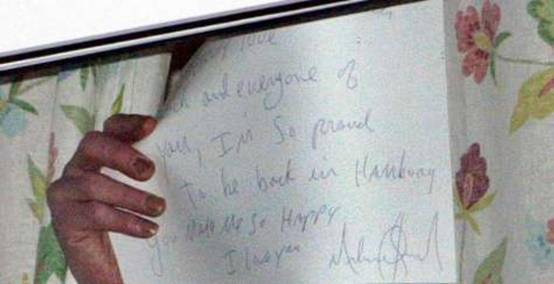 love
and everyone of
you, I'm so proud
to be back in Hamburg
you make me so HAPPY
I love you